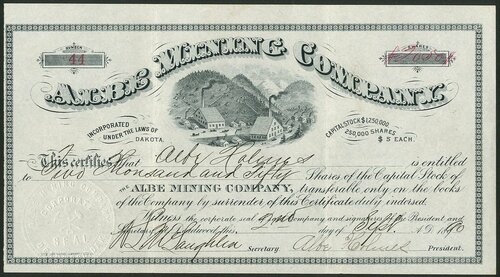 NUMBER
44
SHARES
ALBE MINING COMPANY.
INCORPORATED
UNDER THE LAWS OF
DAKOTA.
CAPITAL STOCK $1,250,000
250,000 SHARES
$5 EACH.
This certifies that Albe Holmes is entitled
to Two Thousand and Fifty Shares of the Capital Stock of
THE ALBE MINING COMPANY, transferable only on the books
of the Company by surrender of this Certificate duly indorsed.
Witness the corporate seal of said Company and signatures of its President and
Secretary at Deadwood this day of Sept. 1890
Secretary. Albe Holmes President